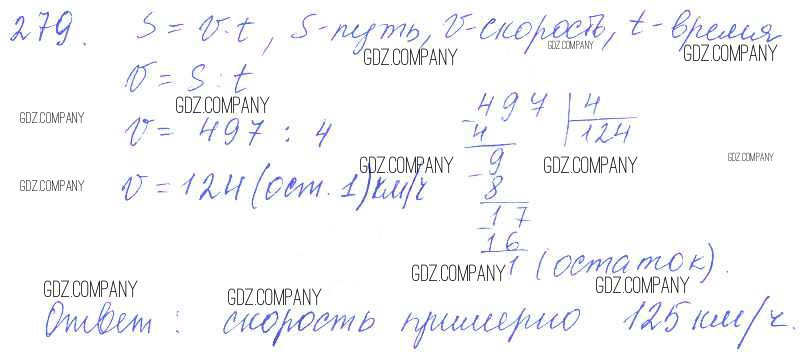 279. S = v·t, S-путь, v-скорость, t-время
GDZ.COMPANY GDZ.COMPANY GDZ.COMPANY
v = S : t
GDZ.COMPANY GDZ.COMPANY
v = 497 : 4
497 | 4
- 4 | 124
9
GDZ.COMPANY GDZ.COMPANY GDZ.COMPANY
- 8
GDZ.COMPANY
v = 124 (ост. 1) км/ч
17
- 16
1 (остаток).
GDZ.COMPANY GDZ.COMPANY
GDZ.COMPANY GDZ.COMPANY
Ответ: скорость примерно 125 км/ч.